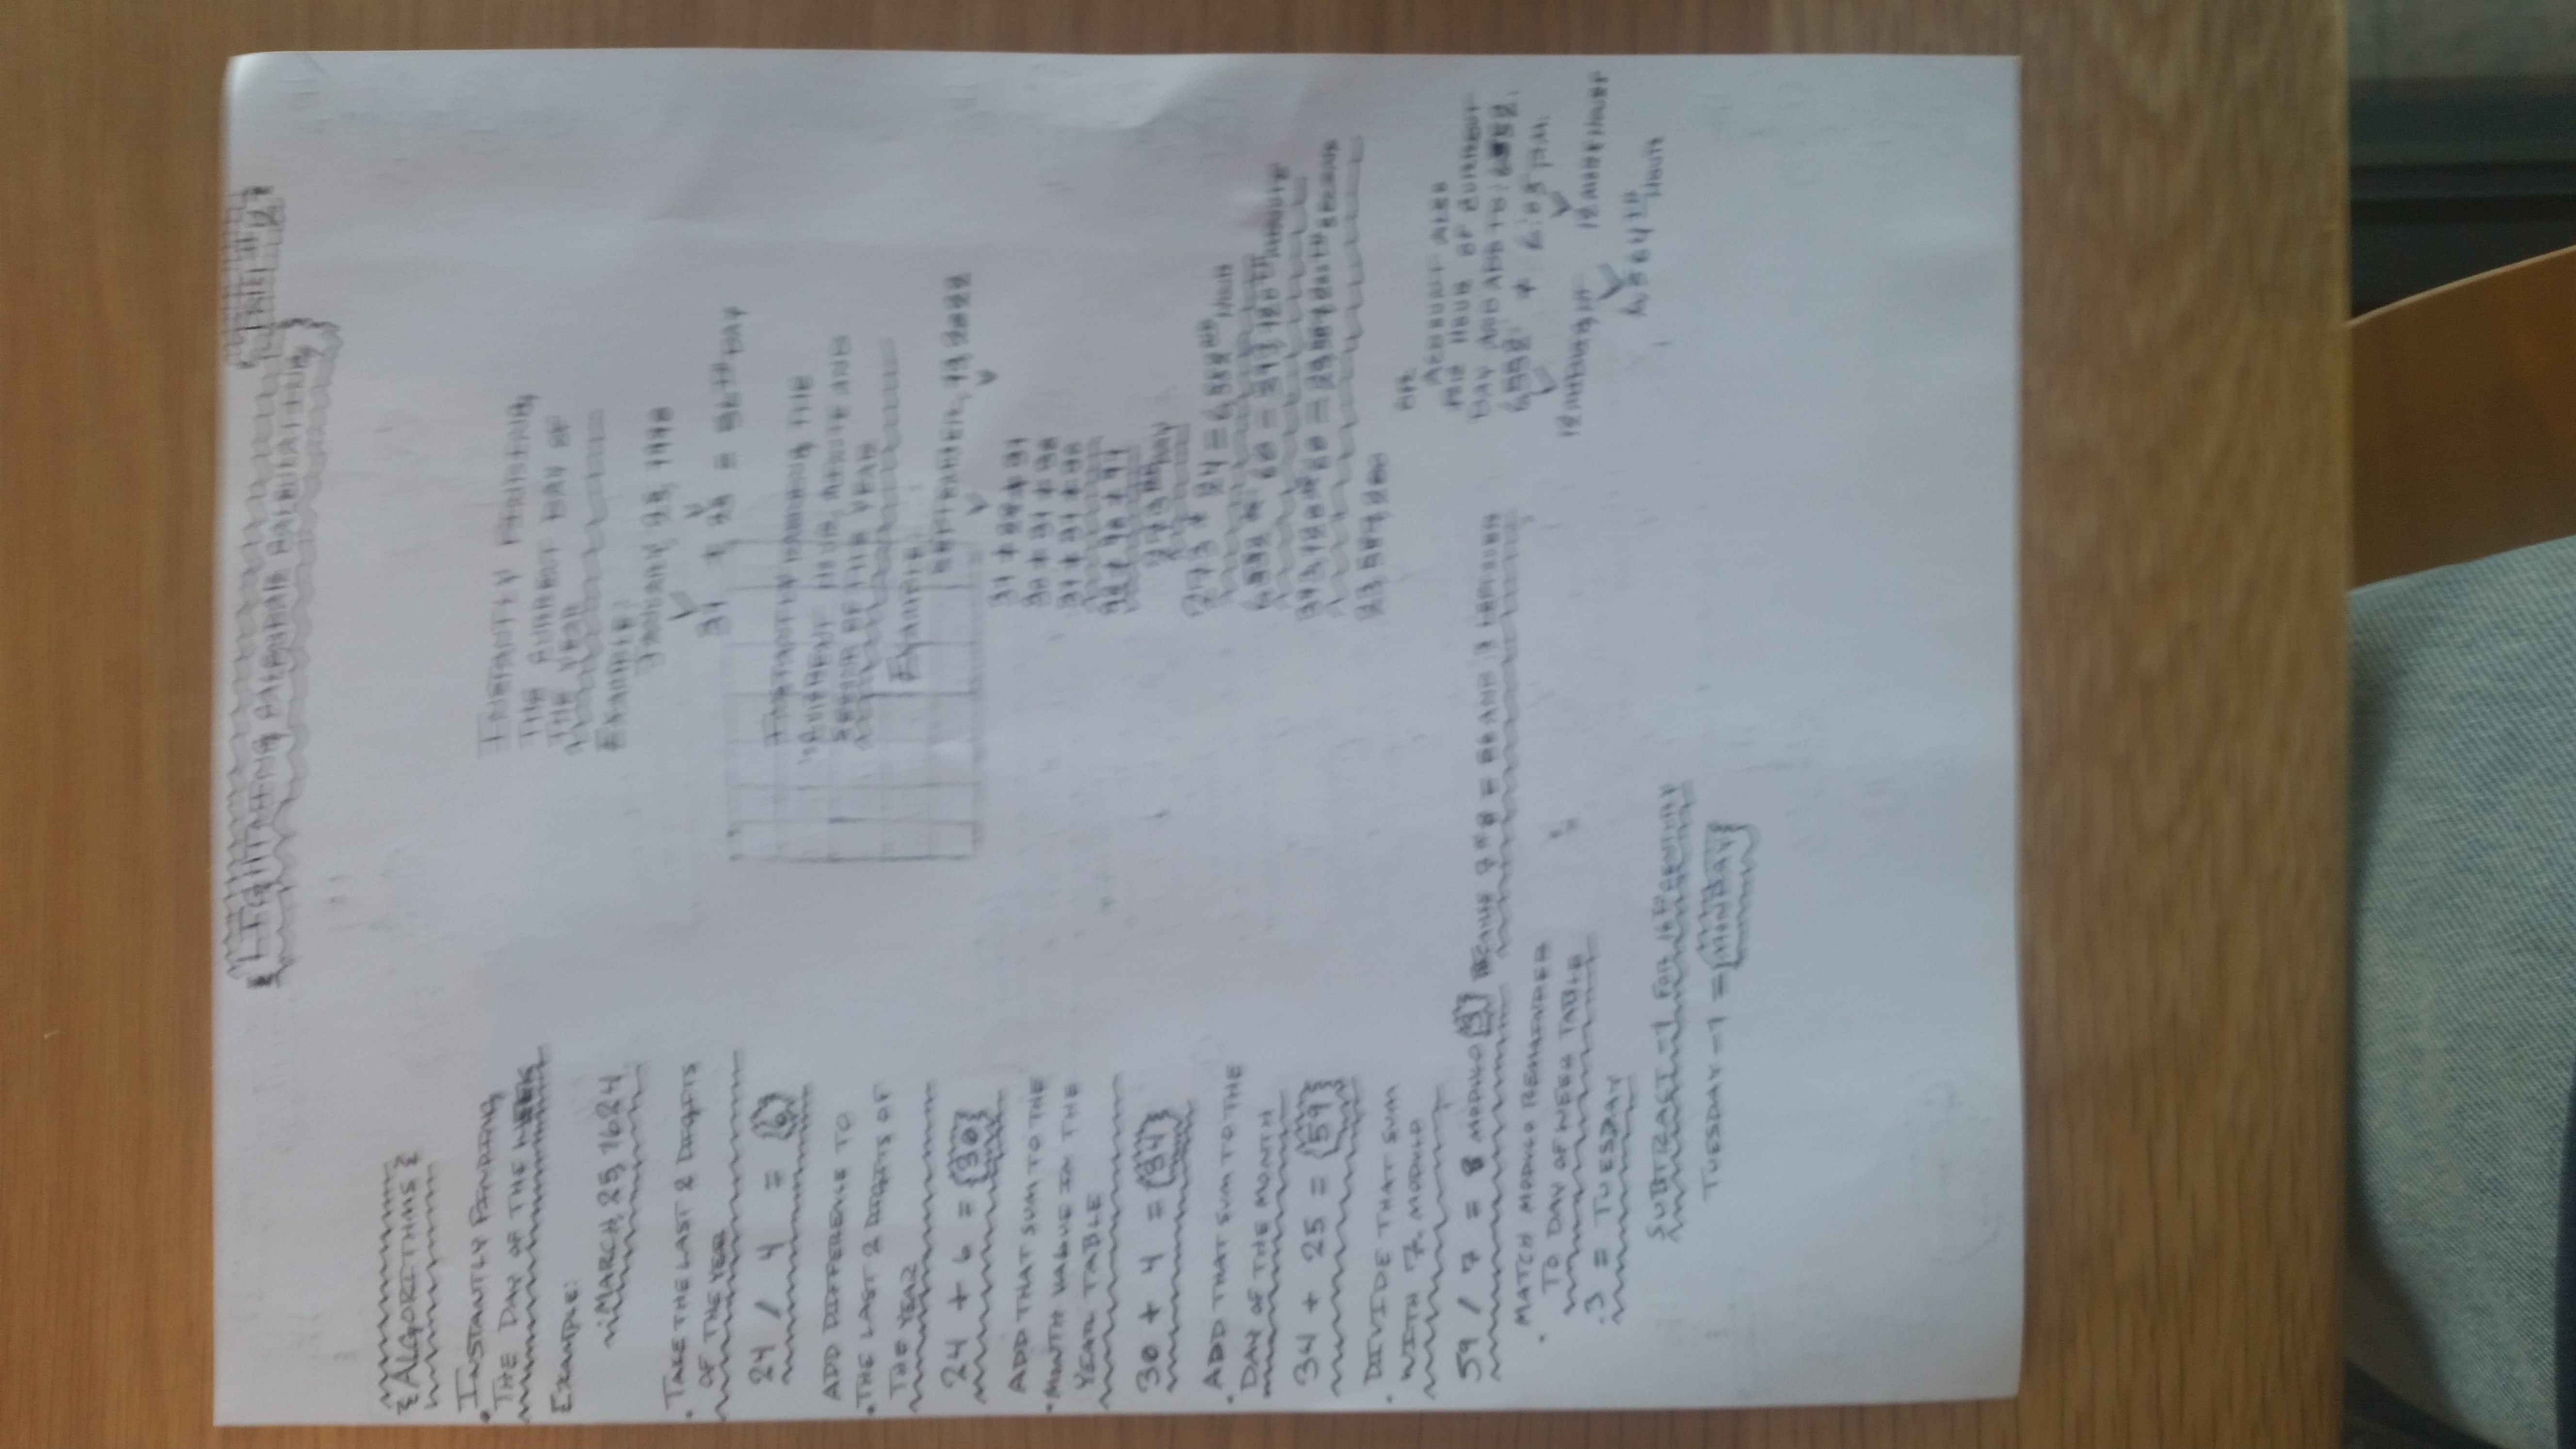 LIGHTNING CALENDAR CALCULATING
{ALGORITHMS}
. INSTANTLY FINDING
THE DAY OF THE WEEK
EXAMPLE:
MARCH, 25, 1624
. TAKE THE LAST 2 DIGITS
OF THE YEAR
24 / 4 = 6
ADD DIFFERENCE TO
. THE LAST 2 DIGITS OF
THE YEAR
24 + 6 = {30}
ADD THAT SUM TO THE
. MONTH VALUE IN THE
YEAR TABLE
30 + 4 = {34}
. ADD THAT SUM TO THE
DAY OF THE MONTH
34 + 25 = {59}
. DIVIDE THAT SUM
WITH 7. MODULO
59 / 7 = 8 MODULO 3 BECAUSE 7 * 8 = 56 AND 3 LEFTOVER
. MATCH MODULO REMAINDER
TO DAY OF WEEK TABLE
. 3 = TUESDAY
SUBTRACT -1 FOR 16TH CENTURY
TUESDAY - 1 = MONDAY
INSTANTLY FINDING
THE CURRENT DAY OF
THE YEAR
EXAMPLE:
JANUARY, 25,
31 + 25 = 56TH DAY
INSTANTLY THE
CURRENT HOUR, MINUTE AND
SECOND OF THE YEAR
EXAMPLE:
SEPTEMBER, 2022
31 + 28 + 31
30 + 31 + 30
31 + 31 + 30
273 DAY
273 * 24 = 6,552 HOUR
6,552 * 60 = 393,120TH MINUTE
393,120 * 60 = 23,587,200TH SECOND
23,587,200
OR
ACCOUNT ALSO
THE HOUR OF CURRENT
DAY AND ADD TO: 6552.
6,552 + P.M.
12 MORE HOURS
6,564TH
HOUR